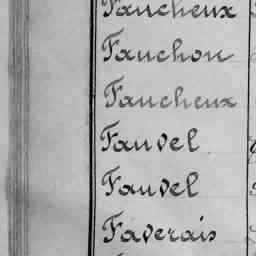 Faucheux
Fauchon
Faucheux
Fauvel
Fauvel
Faverais